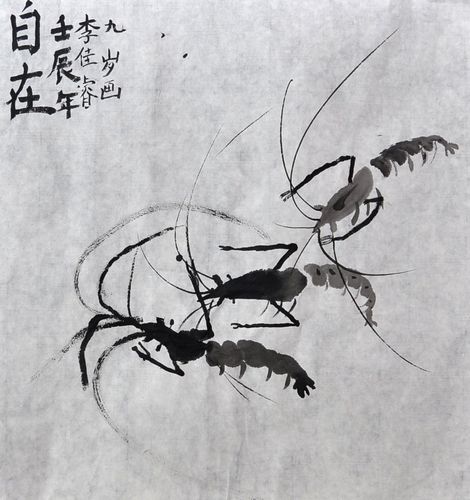 自在
壬辰年
李佳睿
九岁画